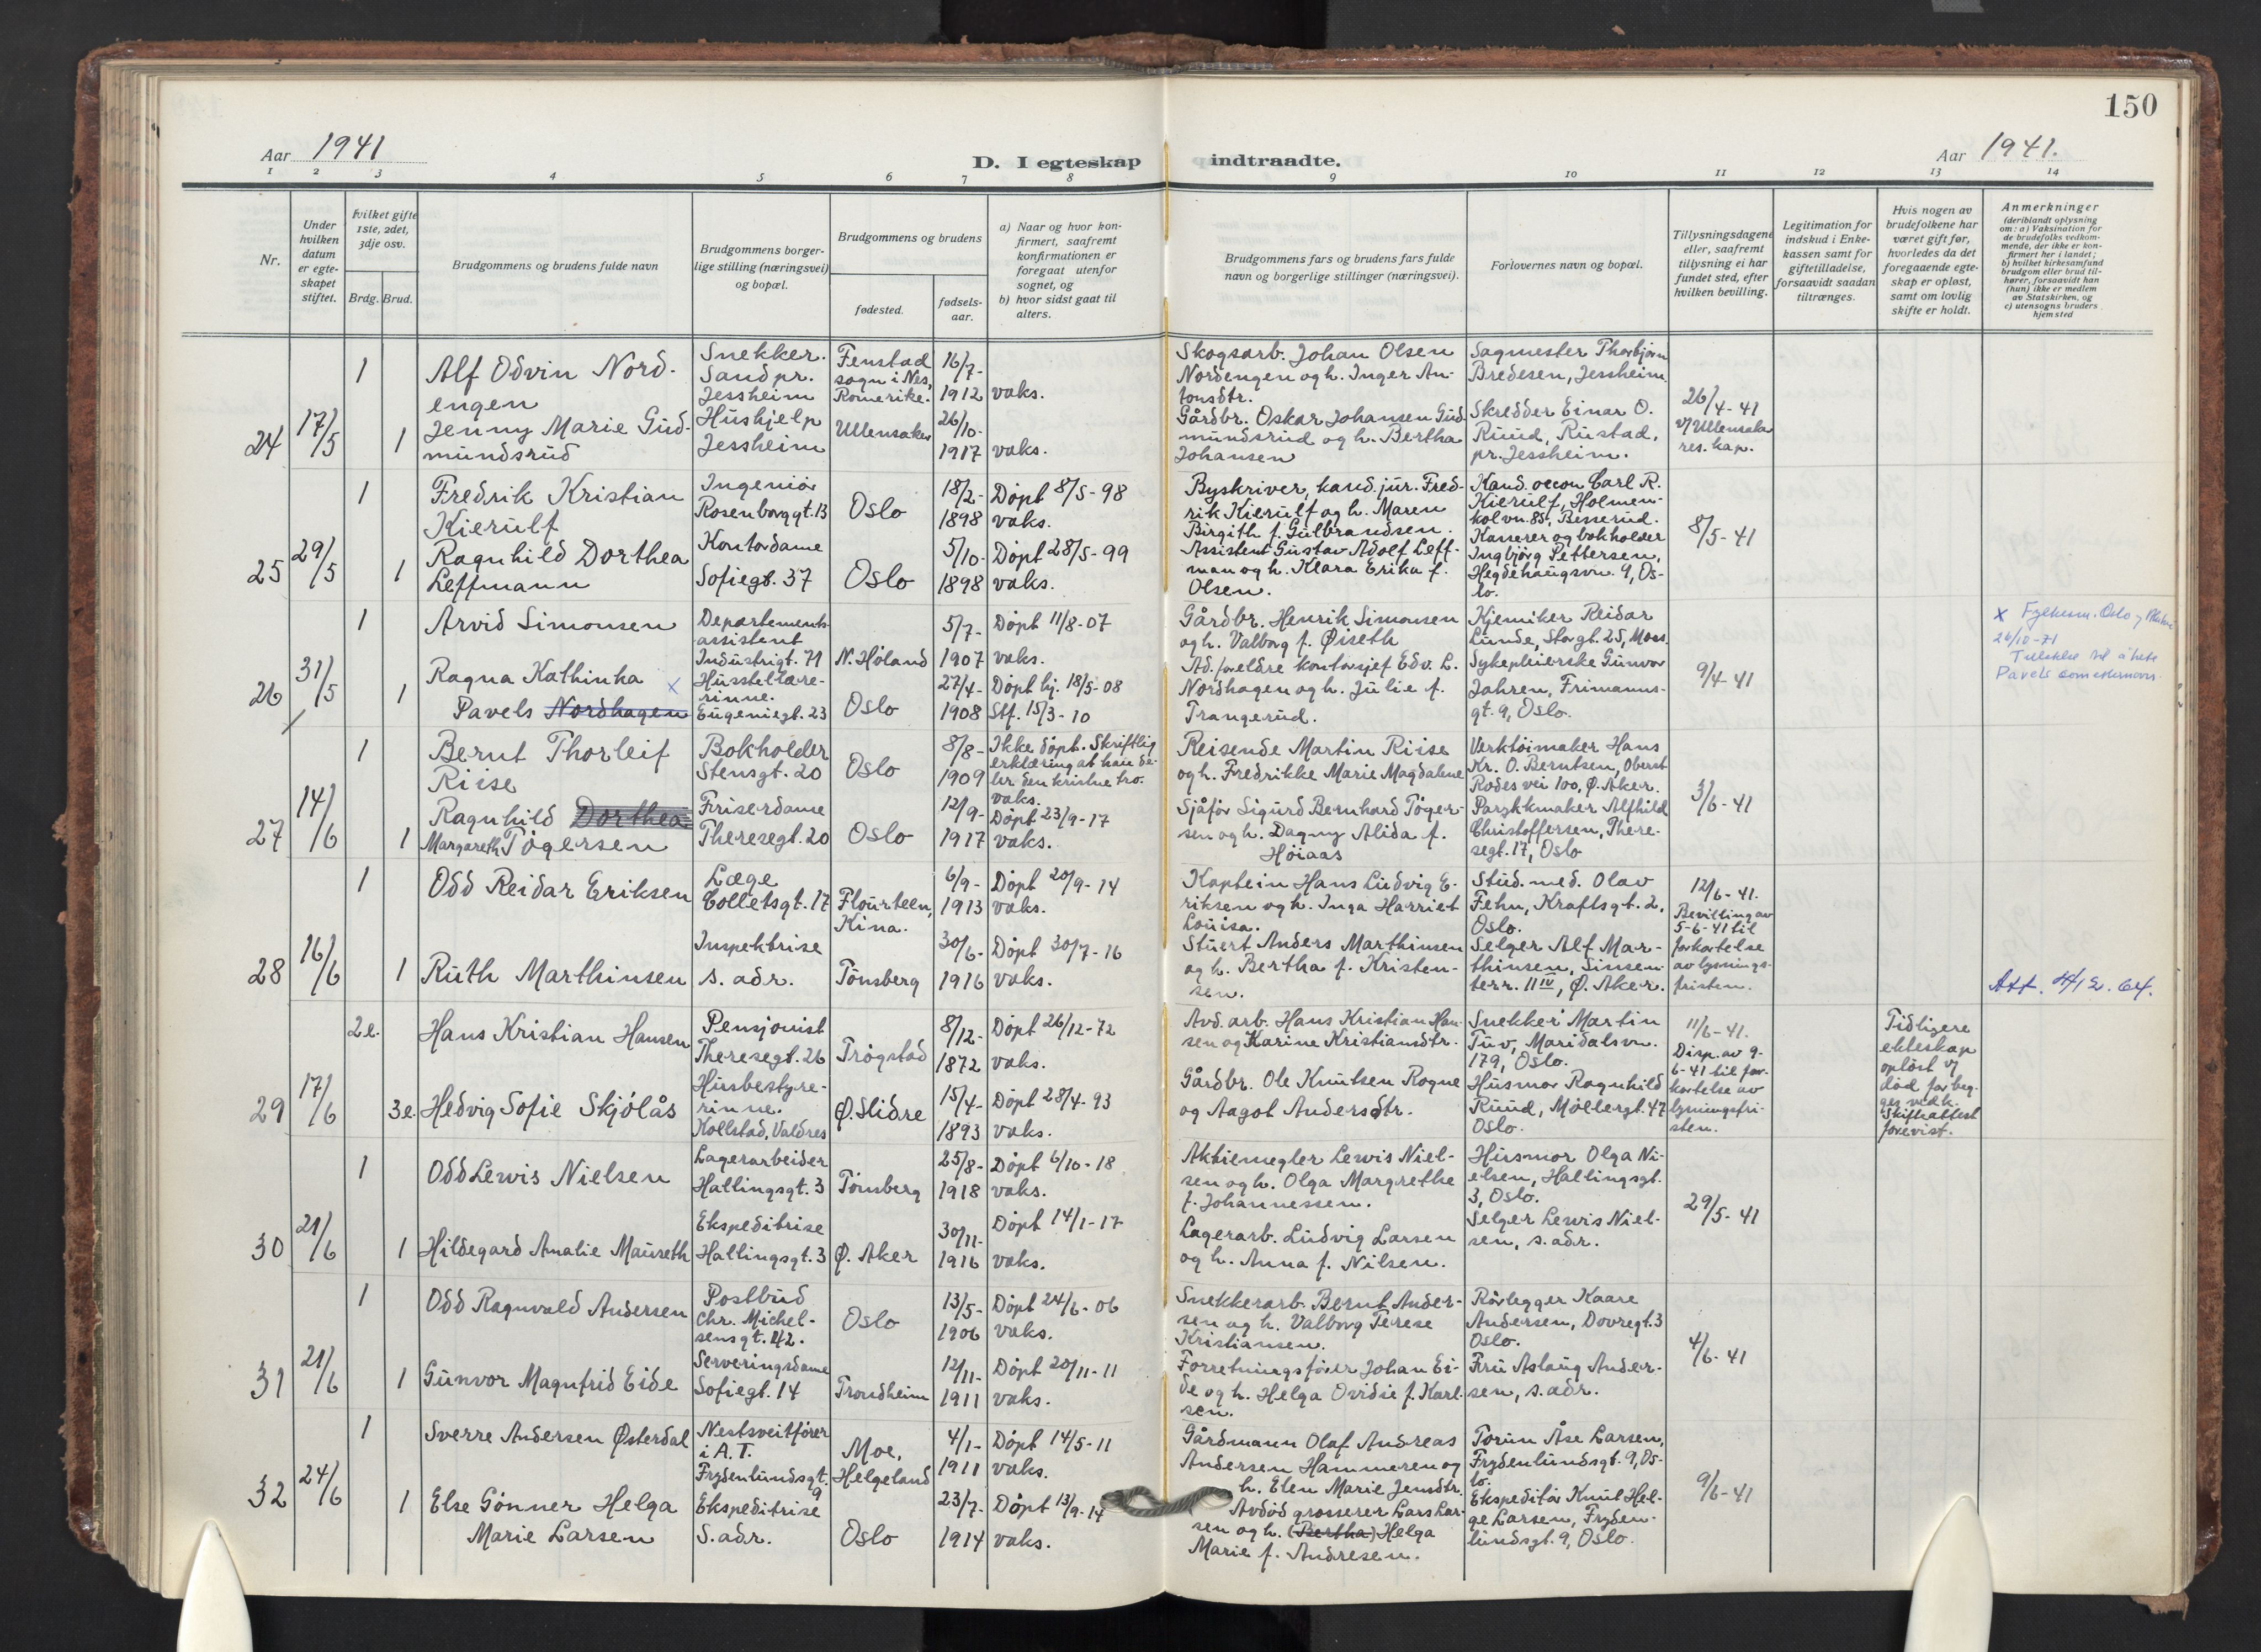 150
Aar 1941
D. I egteskap indtraadte.
Aar 1941.
1 2 3 4 5 6 7 8 9 10 11 12 13 14
Nr.
Under hvilken datum er egteskapet stiftet.
Hvilket gifte 1ste, 2det, 3dje osv.
Brdg. Brud.
Brudgommens og brudens fulde navn
Brudgommens borgerlige stilling (næringsvei) og bopæl.
Brudgommens og brudens
fødested.
fødselsaar.
a) Naar og hvor konfirmert, saafremt konfirmationen er foregaat utenfor sognet, og
b) hvor sidst gaat til alters.
Brudgommens fars og brudens fars fulde navn og borgerlige stillinger (næringsvei).
Forlovernes navn og bopæl.
Tillysningsdagene eller, saafremt tillysning ei har fundet sted, efter hvilken bevilling.
Legitimation for indskud i Enkekassen samt for giftetilladelse, forsaavidt saadan tiltrænges.
Hvis nogen av brudefolkene har været gift før, hvorledes da det foregaaende egteskap er opløst, samt om lovlig skifte er holdt.
Anmerkninger
(deriblandt oplysning om: a) Vaksination for de brudefolks vedkommende, der ikke er konfirmert her i landet; b) hvilket kirkesamfund brudgom eller brud tilhører, forsaavidt han (hun) ikke er medlem av Statskirken, og c) utensogns bruders hjemsted
24 17/5
1 Alf Odvin Nordengen
Snekker. Sand pr. Jessheim
Fenstad sogn i Nes, Romerike.
16/7- 1912 vaks.
Skogsarb. Johan Olsen Nordengen og h. Inger Antonsdtr.
Sagmester Thorbjørn Bredesen, Jessheim.
26/4-41 v/ Ullensaker res. kap.
1 Jenny Marie Gudmundsrud
Hushjelp Jessheim
Ullensaker
26/10- 1917 vaks.
Gårdbr. Oskar Johansen Gudmundsrud og h. Bertha Johansen
Skredder Einar O. Ruud, Rustad, pr. Jessheim.
25 29/5
1 Fredrik Kristian Kierulf
Ingeniør Rosenborggt. 13
Oslo
18/2- 1898
Døpt 8/5-98 vaks.
Byskriver, kand. jur. Fredrik Kierulf og h. Maren Birgith f. Gulbrandsen.
Kand. oecon Carl R. Kierulf, Holmenkolvn. 85, Besserud.
8/5-41
1 Ragnhild Dorthea Leffmann
Kontordame Sofiegt. 37
Oslo
5/10- 1898
Døpt 28/5-99 vaks.
Assistent Gustav Adolf Leffman og h. Klara Erika f. Olsen.
Kasserer og bokholder Ingbjørg Pettersen, Hegdehaugsvn. 9, Oslo.
26 31/5
1 Arvid Simonsen
Departementsassistent Industrigt. 71
N. Høland
5/7- 1907
Døpt 11/8-07 vaks.
Gårdbr. Henrik Simonsen og h. Valborg f. Øiseth
Kjemiker Reidar Lunde, Storgt. 25, Moss.
9/4-41
1 Ragna Kathinka x Pavels Nordhagen
Husstellærerinne. Eugeniegt. 23
Oslo
27/4- 1908
Døpt hj. 18/5-08 Stf. 15/3-10
Ad. foreldre kontorsjef Edv. L. Nordhagen og h. Julie f. Trangerud.
Sykepleierske Gunvor Jahren, Frimannsgt. 9, Oslo.
x Fylkesm. Oslo og
26/10-71
Pavels som etternavn.
27 14/6
1 Bernt Thorleif Riise
Bokholder Stensgt. 20
Oslo
8/8- 1909
Ikke døpt. Skriftlig erklæring at han deler den kristne tro. vaks.
Reisende Martin Riise og h. Fredrikke Marie Magdalene
Verktøimaker Hans Kr. O. Berntsen, Oberst Rodes vei 100, Ø. Aker.
3/6-41
1 Ragnhild Dorthea Margareth Tøgersen
Friserdame Theresegt. 20
Oslo
12/9- 1917
Døpt 23/9-17 vaks.
Sjåfør Sigurd Bernhard Tøgersen og h. Dagny Alida f. Høiaas
Parykkmaker Alfhild Christoffersen, Theresegt. 17, Oslo
28 16/6
1 Odd Reidar Eriksen
Læge Colletsgt. 17
Flourteen, Kina.
6/9- 1913
Døpt 20/9-14 vaks.
Kaptein Hans Ludvig Eriksen og h. Inga Harriet Louisa.
Stud. med. Olav Fehn, Kraftsgt. 2, Oslo.
12/6-41. Bevilling av 5-6-41 til forkortelse av lysningsfristen.
1 Ruth Marthinsen
Inspektrise s. adr.
Tønsberg
30/6- 1916
Døpt 30/7-16 vaks.
Stuert Anders Marthinsen og h. Bertha f. Kristensen.
Selger Alf Marthinsen, Sinsenterr. 11 IV, Ø. Aker.
Att. 4/12.64.
29 17/6
2e. Hans Kristian Hansen
Pensjonist Theresegt. 26
Trøgstad
8/12- 1872
Døpt 26/12-72 vaks.
Avd. arb. Hans Kristian Hansen og Karine Kristiansdtr.
Snekker Martin Tuv, Maridalsvn. 179, Oslo.
11/6-41. Disp. av 9-6-41 til forkortelse av lysningsfristen.
Tidligere ekteskap opløst v/ død for begges vedk. Skifteattest forevist.
3e. Hedvig Sofie Skjølås
Husbestyrerinne. Kollstad, Valdres
Ø. Slidre
15/4- 1893
Døpt 28/4-93 vaks.
Gårdbr. Ole Knutsen Rogne og Aagot Andersdtr.
Husmor Ragnhild Ruud, Møllergt. 47 Oslo.
30 21/6
1 Odd Lewis Nielsen
Lagerarbeider Hallingsgt. 3
Tønsberg
25/8- 1918
Døpt 6/10-18 vaks.
Aktiemegler Lewis Nielsen og h. Olga Margrethe f. Johannessen.
Husmor Olga Nielsen, Hallingsgt. 3, Oslo.
29/5-41
1 Hildegard Amalie Mauseth
Ekspeditrise Hallingsgt. 3
Ø. Aker
30/11- 1916
Døpt 14/1-17 vaks.
Lagerarb. Ludvig Larsen og h. Anna f. Nilsen.
Selger Lewis Nielsen, s. adr.
31 21/6
1 Odd Ragnvald Andersen
Postbud Chr. Michelsensgt. 42.
Oslo
13/5- 1906
Døpt 24/6-06 vaks.
Snekkerarb. Bernt Andersen og h. Valborg Terese Kristiansen.
Rørlegger Kaare Andersen, Dovregt. 3 Oslo.
4/6-41
1 Gunvor Magnfrid Eide
Serveringsdame Sofiegt. 14
Trondheim
12/11- 1911
Døpt 20/11-11 vaks.
Forretningsfører Johan Eide og h. Helga Ovidie f. Karlsen.
Fru Aslaug Andersen, s. adr.
32 24/6
1 Sverre Andersen Østerdal
Nestsveitfører i A.T. Frydenlundsgt. 9
Moe, Helgeland
4/1- 1911
Døpt 14/5-11 vaks.
Gårdmann Olaf Andreas Andersen Hammeren og h. Elen Marie Jensdtr.
Torun Åse Larsen, Frydenlundsgt. 9, Oslo.
9/6-41
1 Else Gønner Helga Marie Larsen
Ekspeditrise S. adr.
Oslo
23/7- 1914
Døpt 13/9-14 vaks.
Avdød grosserer Lars Larsen og h. (Bertha) Helga Marie f. Andresen.
Ekspeditør Knut Helge Larsen, Frydenlundsgt. 9, Oslo.